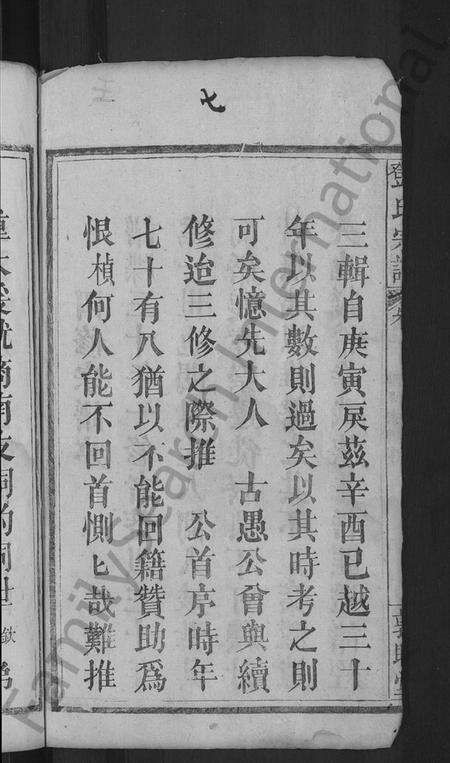 七
三輯自庚寅戻茲辛酉已越三十
年以其數則過矣以其時考之則
可矣憶先大人　古愚公曾與續
修迨三修之際推　公首序時年
七十有八猶以不能回籍贊助爲
恨楨何人能不回首惻匕哉難推
FamilySearch International